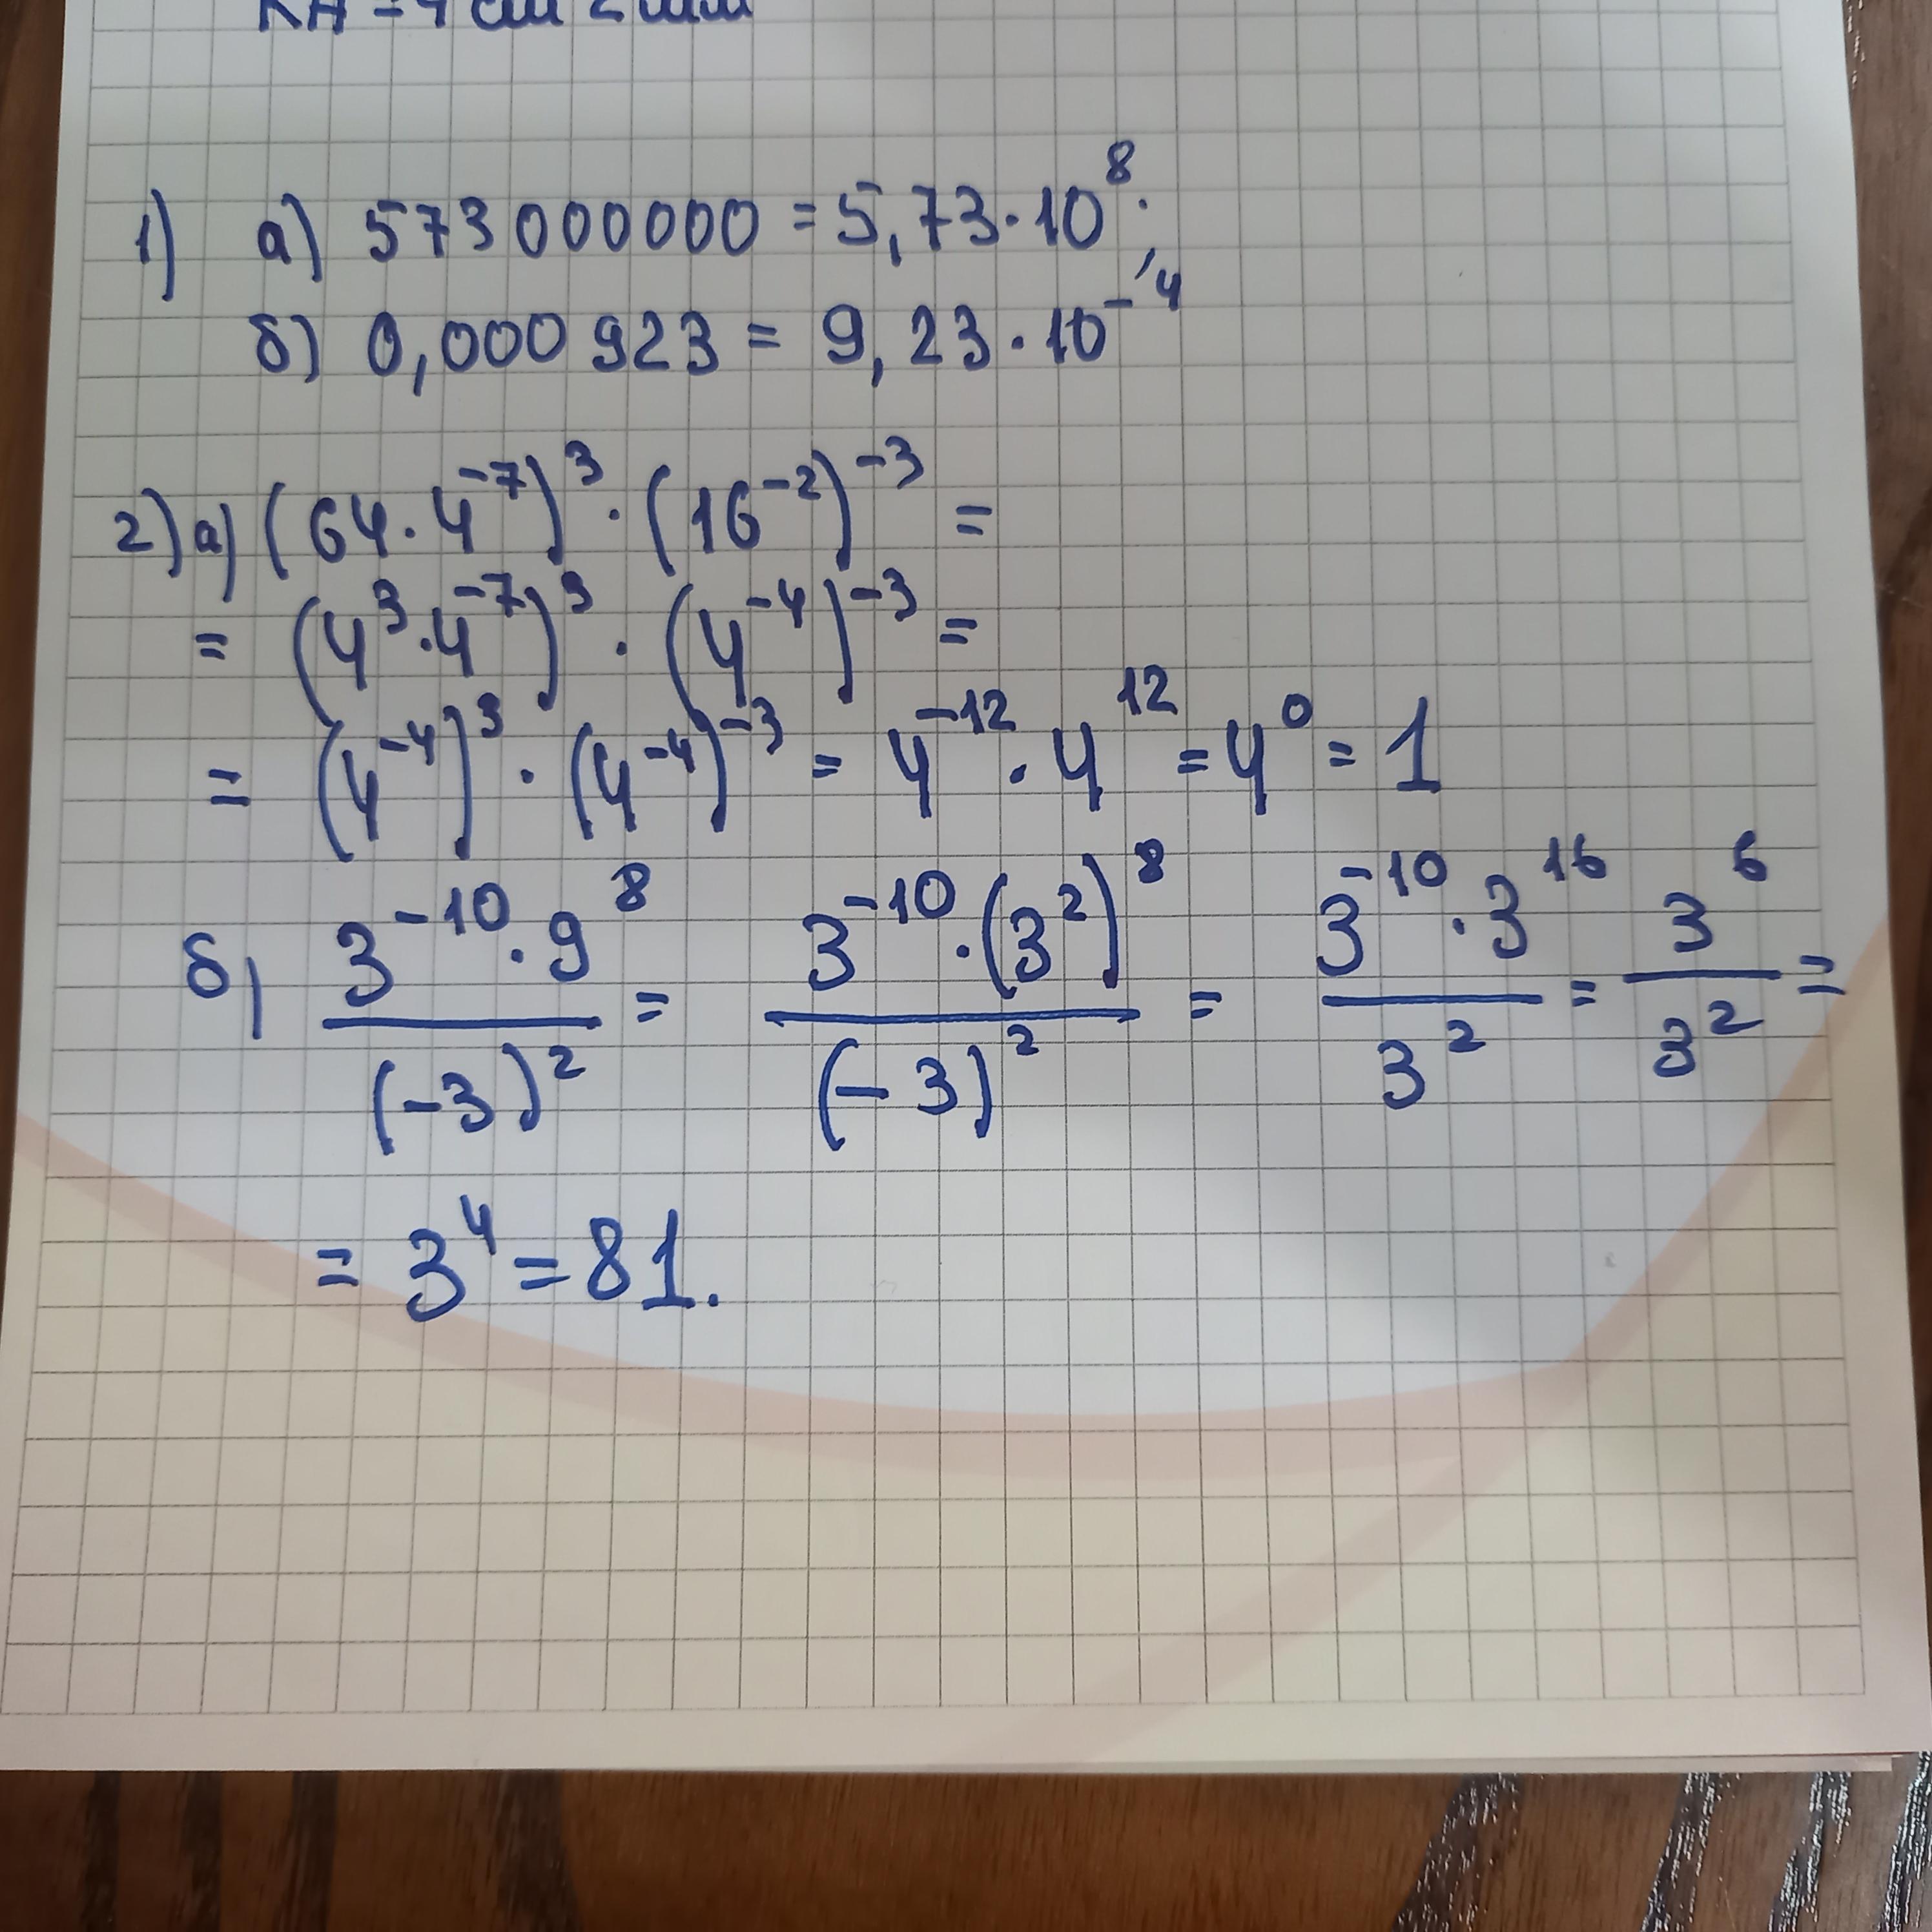 1) а) 573 000 000 = 5,73·10⁸;
б) 0,000 923 = 9,23·10⁻⁴
2) а) (64·4⁻⁷)³·(16⁻²)⁻³ =
= (4³·4⁻⁷)³·(4⁻⁴)⁻³ =
= (4⁻⁴)³·(4⁻⁴)⁻³ = 4⁻¹²·4¹² = 4⁰ = 1
б) (3⁻¹⁰·9⁸)/(-3)² = (3⁻¹⁰·(3²)⁸)/(-3)² = (3⁻¹⁰·3¹⁶)/3² = 3⁶/3² =
= 3⁴ = 81.